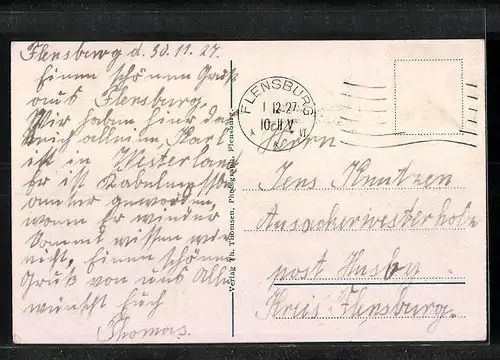 Flensburg d. 30.11.27.
Einen schönen Gruß
aus Flensburg.
Wir haben hier das
allein, Karl
ist in Westerland
Er ist
geworden,
wann Er wieder
kommt wissen wir
nicht, Einen schönen
Gruß von uns Alle
wünscht Euch
Thomas.
Verlag Th. Thomsen, Photograph, Flensburg
FLENSBURG
1.12.27
10-11 V
Herrn
Jens Knutzen
Ausackerwesterholz
post Husby
Kreis Flensburg.